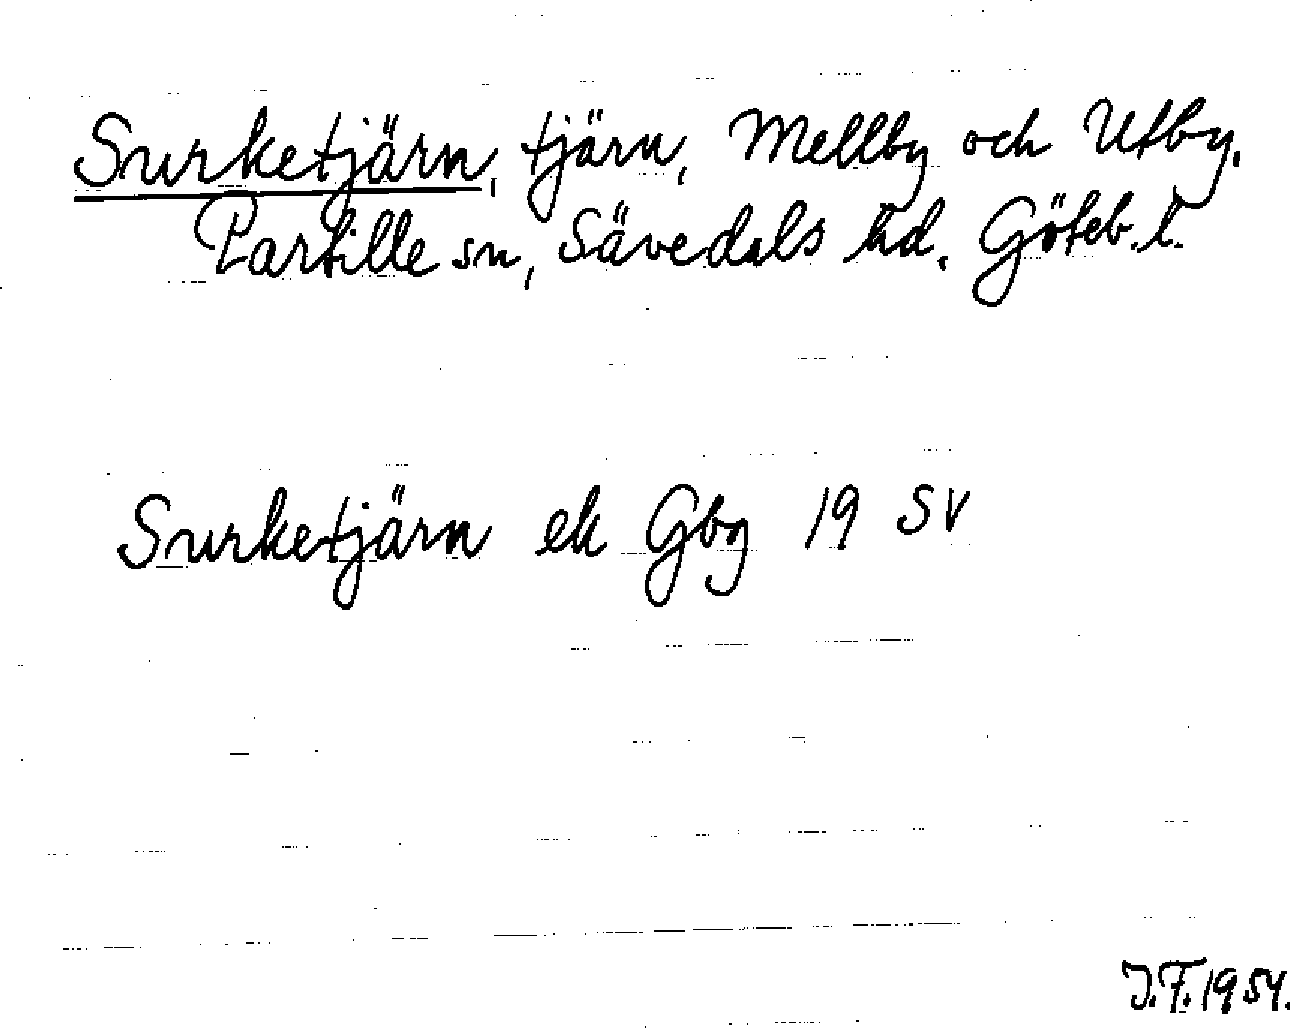 Surketjärn, tjärn, Mellby och Utby.
Partille sn, Sävedals hd. Göteb. l.
Surketjärn ek Gbg 19 SV
J.F. 1954.